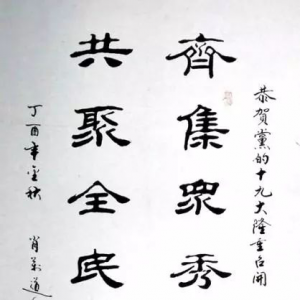 恭賀黨的十九大隆重召開
齊集眾秀
共聚全民
丁酉年金秋
肖
道